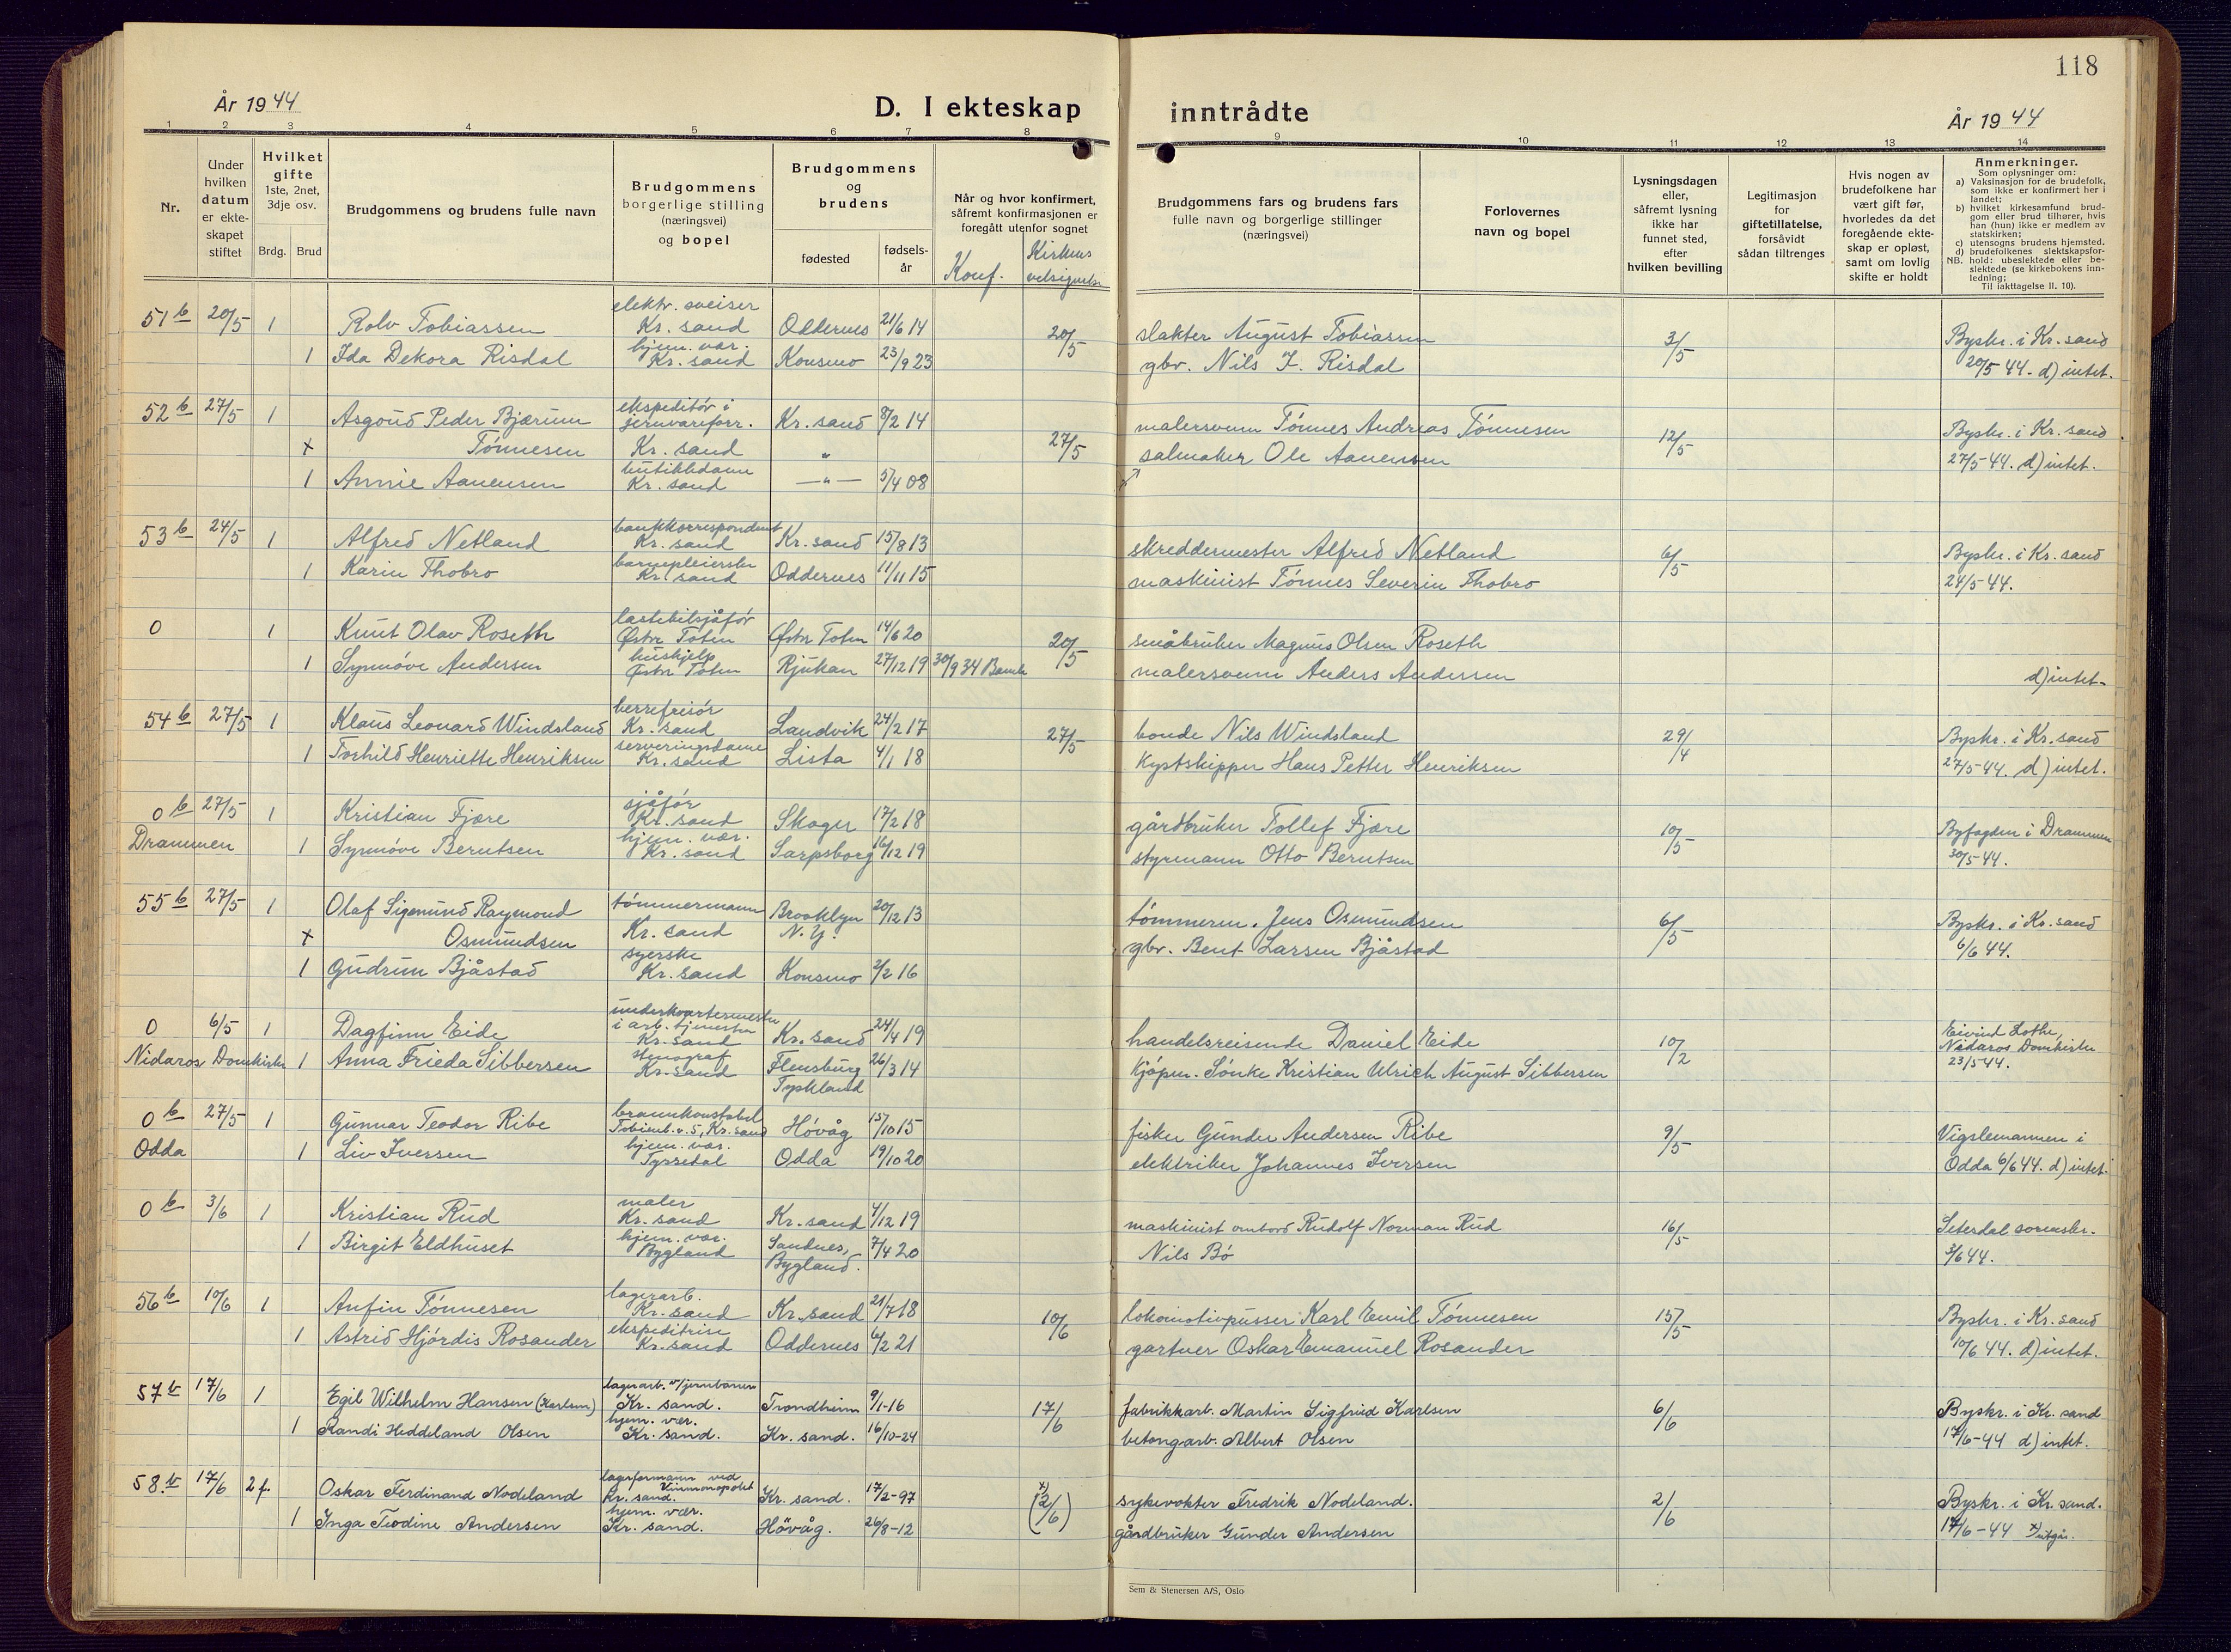 118
År 1944
D. I ekteskap inntrådte
År 1944
1 2 3 4 5 6 7 8 9 10 11 12 13 14
Nr.
Under hvilken datum er ekte-skapet stiftet
Hvilket gifte
1ste, 2net, 3dje osv.
Brdg. Brud
Brudgommens og brudens fulle navn
Brudgommens borgerlige stilling (næringsvei) og bopel
Brudgommens og brudens
fødested
fødsels-år
Når og hvor konfirmert, såfremt konfirmasjonen er foregått utenfor sognet
Konf.
Kirkens velsignelse
Brudgommens fars og brudens fars fulle navn og borgerlige stillinger (næringsvei)
Forlovernes navn og bopel
Lysningsdagen eller, såfremt lysning ikke har funnet sted, efter hvilken bevilling
Legitimasjon for giftetillatelse, forsåvidt sådan tiltrenges
Hvis nogen av brudefolkene har vært gift før, hvorledes da det foregående ekte-skap er opløst, samt om lovlig skifte er holdt
Anmerkninger.
Som oplysninger om:
a) Vaksinasjon for de brudefolk, som ikke er konfirmert her i landet;
b) hvilket kirkesamfund brud-gom eller brud tilhører, hvis han (hun) ikke er medlem av statskirken;
c) utensogns brudens hjemsted.
d) brudefolkenes slektskapsfor-hold: ubeslektede eller be-slektede (se kirkebokens inn-ledning;
NB.
Til iakttagelse II. 10).
51 b 20/5 1 Rolv Tobiassen elektr. sveiser Kr. sand Oddernes 21/6 14 20/5 slakter August Tobiassen 3/5 Byskr. i Kr. sand
1 Ida Dekora Risdal hjem. vær. Kr. sand Konsmo 23/9 23 gbr. Nils J. Risdal 20/5 44. d) intet.
52 b 27/5 1 Asgoud Peder Bjærum ekspeditør i jernvareforr. Kr. sand 8/2 14 malersvenn Tønnes Andreas Tønnesen 12/5 Byskr. i Kr. sand
x Tønnesen Kr. sand " 27/5 salmaker Ole Aanensen 27/5 44. d) intet.
1 Annie Aanensen butikkdame Kr. sand —"— 5/4 08
53 b 24/5 1 Alfred Netland bankkorrespondent Kr. sand Kr. sand 15/8 13 skreddermester Alfred Netland 6/5 Byskr. i Kr. sand
1 Karin Thobro barnepleierske Kr. sand Oddernes 11/11 15 maskinist Tønnes Severin Thobro 24/5 44.
0 1 Knut Olav Roseth lastebilsjåfør Østre Toten Østre Toten 14/6 20 20/5 småbruker Magnus Olsen Roseth
1 Synnøve Andersen hushjelp Østre Toten Rjukan 27/12 19 30/9 34 Bamle malersvenn Anders Andersen d) intet.
54 b 27/5 1 Klaus Leonard Windsland herrefrisør Kr. sand Landvik 24/2 17 27/5 bonde Nils Windsland 29/4 Byskr. i Kr. sand
1 Torhild Henriette Henriksen serveringsdame Kr. sand Lista 4/1 18 Kystskipper Hans Petter Henriksen 27/5 44. d) intet.
0 b 27/5 1 Kristian Fjære sjåfør Kr. sand Skoger 17/2 18 gårdbruker Tollef Fjære 10/5 Byfogden i Drammen
Drammen 1 Synnøve Berntsen hjem. vær. Kr. sand Sarpsborg 16/12 19 styrmann Otto Berntsen 30/5 44.
55 b 27/5 1 Olaf Sigmund Raymond tømmermann Brooklyn 20/12 13 tømmerm. Jens Osmundsen 6/5 Byskr. i Kr. sand
x Osmundsen Kr. sand N.Y. gbr. Bent Larsen Bjåstad 6/6 44.
1 Gudrun Bjåstad syerske Kr. sand Konsmo 2/2 16
0 6/5 1 Dagfinn Eide underkvartermester i arb. tjenesten Kr. sand Kr. sand 24/4 19 handelsreisende Daniel Eide 10/2 Eivind Lothe,
Nidaros Domkirke 1 Anna Frieda Sibbersen stenograf Kr. sand Flensburg Tyskland 26/3 14 Kjøpm. Sönke Kristian Ulrich August Sibbersen Nidaros Domkirke 23/5 44.
0 b 27/5 1 Gunnar Teodor Ribe brannkonstabel Tobienb. v. 5, Kr. sand Høvåg 15/10 15 fisker Gunder Andersen Ribe 9/5 Vigslemannen i
Odda 1 Liv Iversen hjem. vær. Tyssedal Odda 19/10 20 elektriker Johannes Iversen Odda 6/6 44. d) intet.
0 b 3/6 1 Kristian Rud maler Kr. sand Kr. sand 4/12 19 maskinist ombord Rudolf Norman Rud 16/5 Setesdal sorenskr.
1 Birgit Eldhuset hjem. vær. Bygland Sandnes, Bygland. 7/4 20 Nils Bø 3/6 44.
56 b 10/6 1 Anfin Tønnesen lagerarb. Kr. sand Kr. sand 21/7 18 10/6 lokomotivpusser Karl Emil Tønnesen 15/5 Byskr. i Kr. sand
1 Astrid Hjørdis Rosander ekspeditrise Kr. sand Oddernes 6/2 21 gartner Oskar Emanuel Rosander 10/6 44. d) intet.
57 b 17/6 1 Egil Wilhelm Hansen (Karlsen) lagerarb. v/jernbanen Kr. sand. Trondheim 9/1-16 17/6 fabrikkarb. Martin Sigfried Karlsen 6/6 Byskr. i Kr. sand
1 Randi Heddeland Olsen hjem. vær. Kr. sand. Kr. sand. 16/10-24 betongarb. Albert Olsen 17/6-44 d) intet.
58. b 17/6 2 f. Oskar Ferdinand Nodeland lagerformann ved Vinmonopolet Kr. sand. Kr. sand. 17/2-97 x) (2/6) sykevokter Fredrik Nodeland. 2/6 Byskr. i Kr. sand.
1 Inga Teodine Andersen hjem. vær. Kr. sand. Høvåg. 26/8-12 gårdbruker Gunder Andersen 17/6-44 x) utgår.
Sem & Stenersen A/S, Oslo